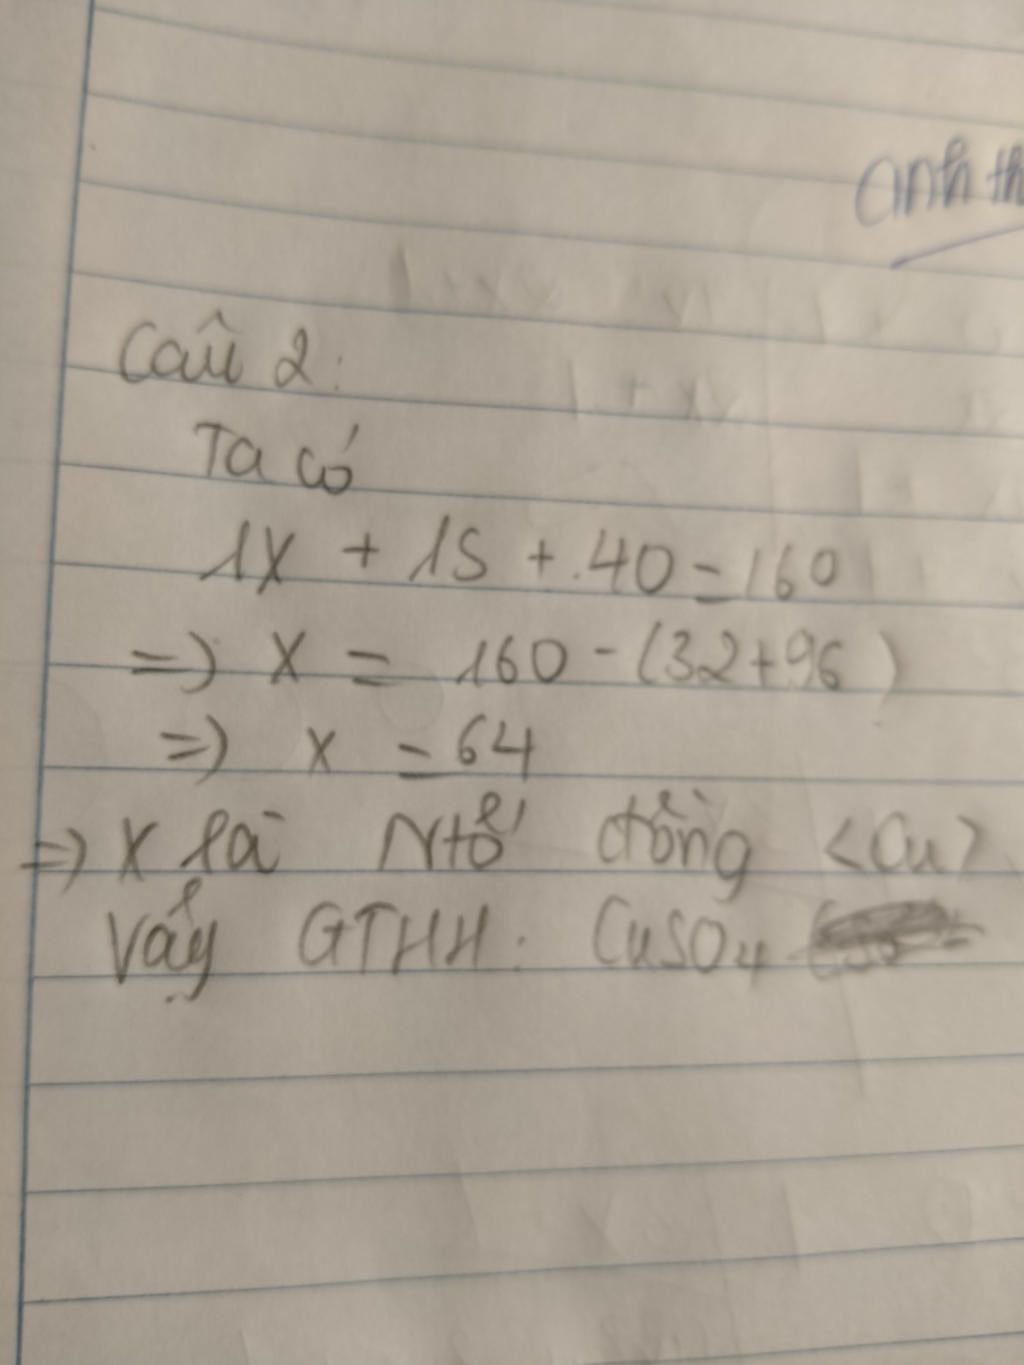 anh th
Câu 2:
Ta có
1X + 1S + 4O = 160
=> X = 160 - (32+96)
=> X = 64
=> X là Ntố đồng <Cu>
Vậy GTHH: CuSO4